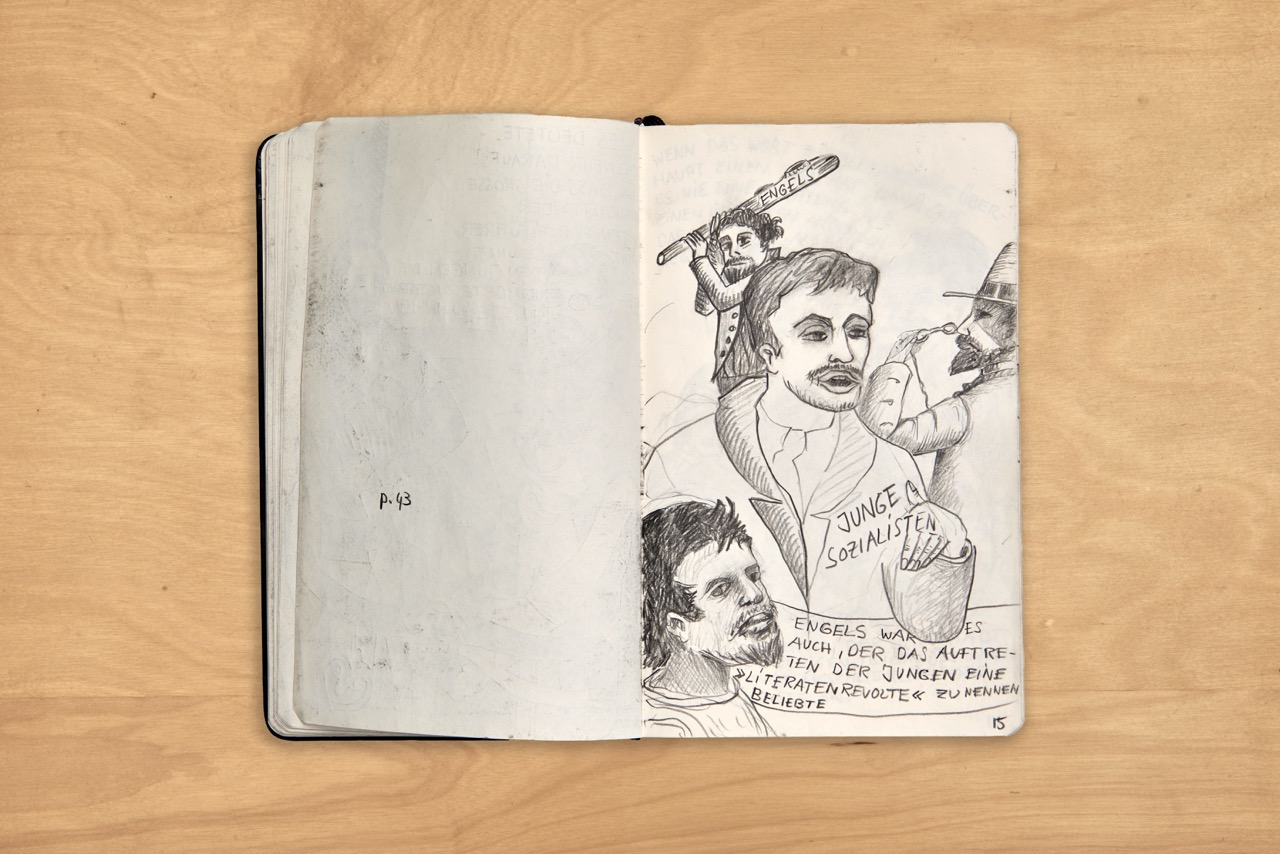 p.43
ENGELS
JUNGE
SOZIALISTEN
ENGELS WAR ES
AUCH, DER DAS AUFTRE-
TEN DER JUNGEN EINE
»LITERATENREVOLTE« ZU NENNEN
BELIEBTE
15